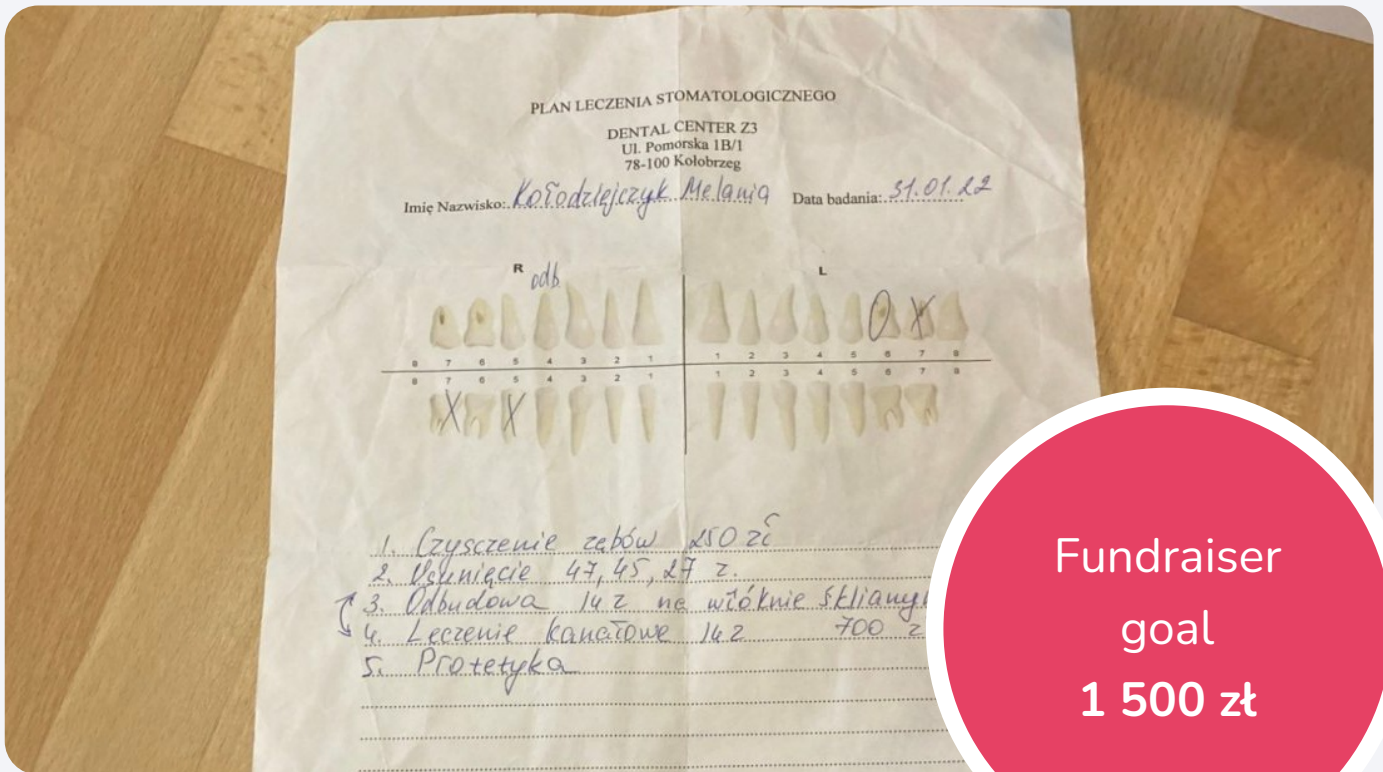 PLAN LECZENIA STOMATOLOGICZNEGO
DENTAL CENTER Z3
Ul. Pomorska 1B/1
78-100 Kołobrzeg
Imię Nazwisko: Kołodziejczyk Melania Data badania: 31.01.22
R odb. L
8 7 6 5 4 3 2 1 1 2 3 4 5 6 7 8
8 7 6 5 4 3 2 1 1 2 3 4 5 6 7 8
1. Czysczenie zębów 250 zł
2. Usunięcie 47, 45, 27 z.
3. Odbudowa 14 z na włóknie
4. Leczenie kanałowe 14 z 700 z
5. Protetyka
Fundraiser
goal
1 500 zł